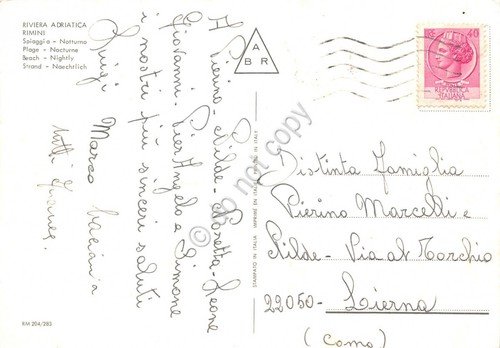 RIVIERA ADRIATICA
RIMINI
Spiaggia - Notturno
Plage - Nocturne
Beach - Nightly
Strand - Naechtlich
A Pierino - Nilde - Loretta - Leone
Giovanni - Pier Angelo a Simone
i nostri più sinceri saluti
Luigi Marco Luciana
tutti
A
B R
STAMPATO IN ITALIA IMPRIME EN ITALIE PRINTED IN ITALY
40
REPUBBLICA
ITALIANA
Distinta Famiglia
Pierino Marcelli e
Nilde - Via al Torchio
22050 - Lierna
(Como)
RM 204/283
do not copy